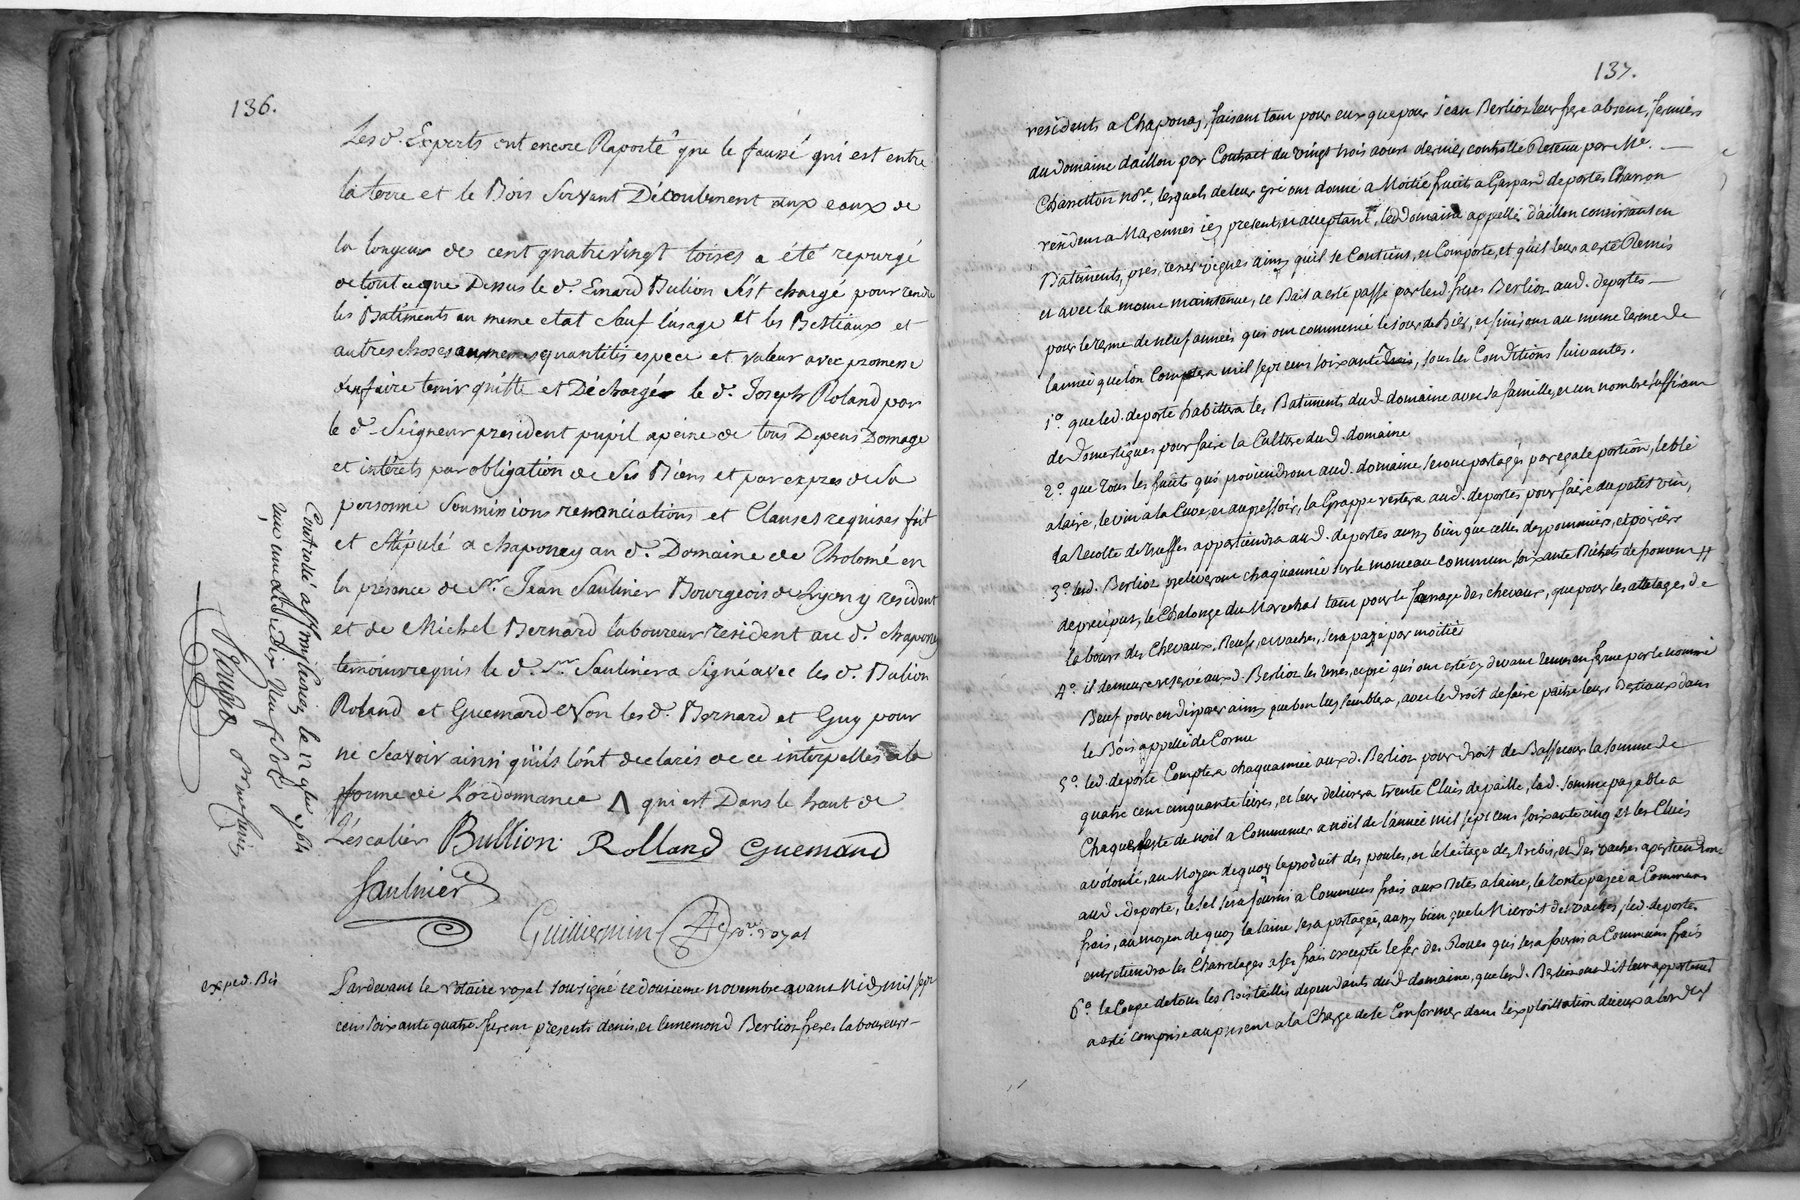 136.
Les d. Experts ont encore Raporté que le faussé qui est entre
la terre et le Bois servant Découlement aux eaux de
la longeur de cent quatrevingt toises a été repurgé
de tout ce que Dessus le d. Emard Bulion s'est chargé pour rendre
les Batiments au meme etat sauf l'usage et les Bestiaux et
autres choses au memes quantités espece et valeur avec promesse
den faire tenir quitte et Décharger le d. Joseph Roland par
le d. Seigneur president pupil a peine de tous Depens Domage
et intérets par obligation de ses Biens et par expres de sa
personne soumissions renonciations et Clauses requises fait
et stipulé a chaponey au d. Domaine de Tholomé en
la presence de Sr. Jean Saulnier Bourgeois de Lyon y resident
et de Michel Bernard laboureur resident au d. chaponey
temoins requis le d. Sr. Saulnier a signé avec les d. Bulion
Roland et Guemard et Non les d. Bernard et Guy pour
ne scavoir ainsi qu'ils l'ont declarés de ce interpellés a la
fforme de l'ordonnance Λ qui est Dans le haut de
l'escalier Bullion Rolland Guemard
Saulnier
Guilliermin Nore. royal
Controllé a le 12 9bre 1764
Reçu
exped. Bis
Pardevant le Notaire royal sousigné ce dousieme novembre avant Midy mil sept
cens soixante quatre furent presents denis, et ennemond Berlioz freres laboureurs-
137.
residents a Chaponay, faisant tant pour eux que pour jean Berlioz leur frere absent, fermiers
du domaine daillon par Contract du vingt trois aoust dernier controllé Retenu par Me. —
Chanetton nore, lesquels de leur gré ont donné a Moitié fruits a Gaspard deportes Charron
resident a Marennes icy present, et acceptant, led. domaine appellé d'aillon consistant en
Batiments, prés, terres vignes ainsy qu'il se Contient, et Comporte, et qu'il leur a esté Remis
et avec la meme maintenue, ce Bail a esté passé par lesd. freres Berlioz aud. deportes —
pour le terme de neuf années qui ont commencé le jour de hier, et finiront au meme terme de
lannée que lon Comptera mil sept cens soixante trois, sous les Conditions suivantes.
1o. que led. deporte habittera les Batiments dud. domaine avec sa famille, et un nombre suffisant
de domestiques pour faire la Culture dud. domaine
2o. que tous les fruits qui proviendront aud. domaine seront partagés par egale portion, le blé
a laire, le vin a la Cuve, et au pressoir, la Grappe restera aud. deportes pour faire du petit vin,
la Recolte de truffes appartiendra aud. deportes aussy bien que celles des pommiers, et poiriers
3o. lesd. Berlioz preleveront chaque année sur le monceau commun soixante Bichets de froment H
de préciput, le Chalonge du Marechal tant pour le ferrage des chevaux, que pour les attelages de
labours des Chevaux, Beufs, et vaches, sera payé par moitié
4o. il demeure reservé aux d. Berlioz les terres, et pré qui ont esté cy devant tenus en ferme par le nommé
Beuf pour en disposer ainsy que bon leur semblera, avec le droit de faire paitre leurs Bestiaux dans
le Bois appellé de Cornu
5o. led. deporte Comptera chaque année aux d. Berlioz pour droit de Bassecour la somme de
quatre cent cinquante livres, et leur delivrera trente Cluis de paille, lad. somme payable a
Chaque feste de noël a Commencer a noël de lannée mil sept cens soixante cinq et les Cluis
a volonté, au Moyen de quoy le produit des poules, et le laitage des brebis, et des vaches apartiendront
aud. deporte, le sel sera fourni a Communs frais aux Betes a laine, la tonte payée a Communs
frais, au moyen de quoy la laine sera partagée, aussy bien que le Microit des vaches, led. deportes
entretiendra les Charrelages a ses frais excepté le fer des Roues qui sera fourni a Communs frais
6o. la Coupe de tous les Bois taillis dependants dud. domaine, que lesd. Berlioz ont dit leur appartenir
a esté comprise au present a la Charge de se Conformer dans l'exploittation diceux a lord